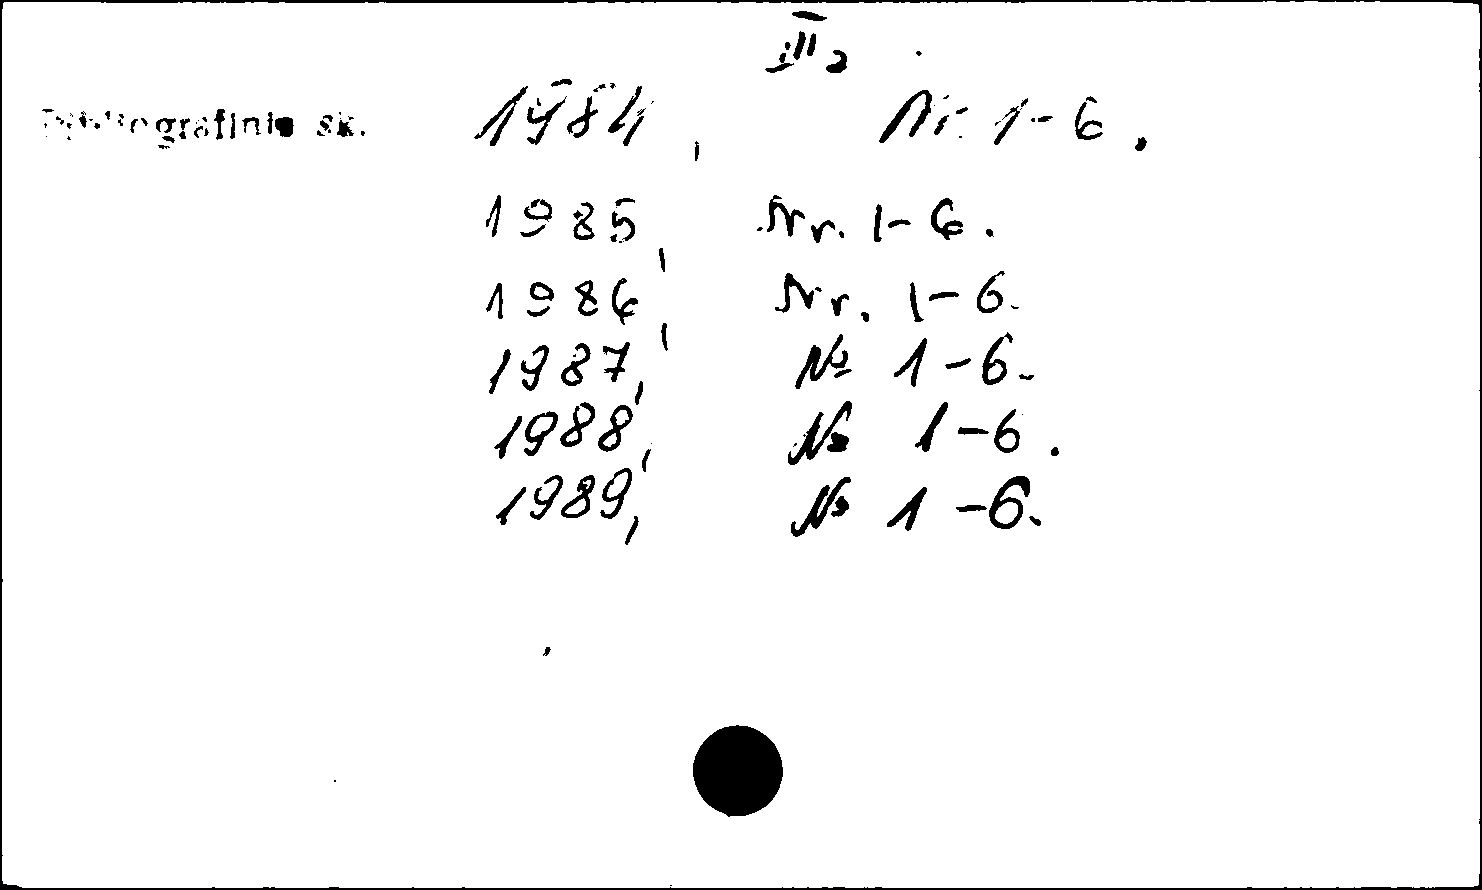 III 2
Bibliografinis sk. 1984, Nr. 1-6.
1985, Nr. 1-6.
1986, Nr. 1-6.
1987, № 1-6.
1988, № 1-6.
1989, № 1-6.